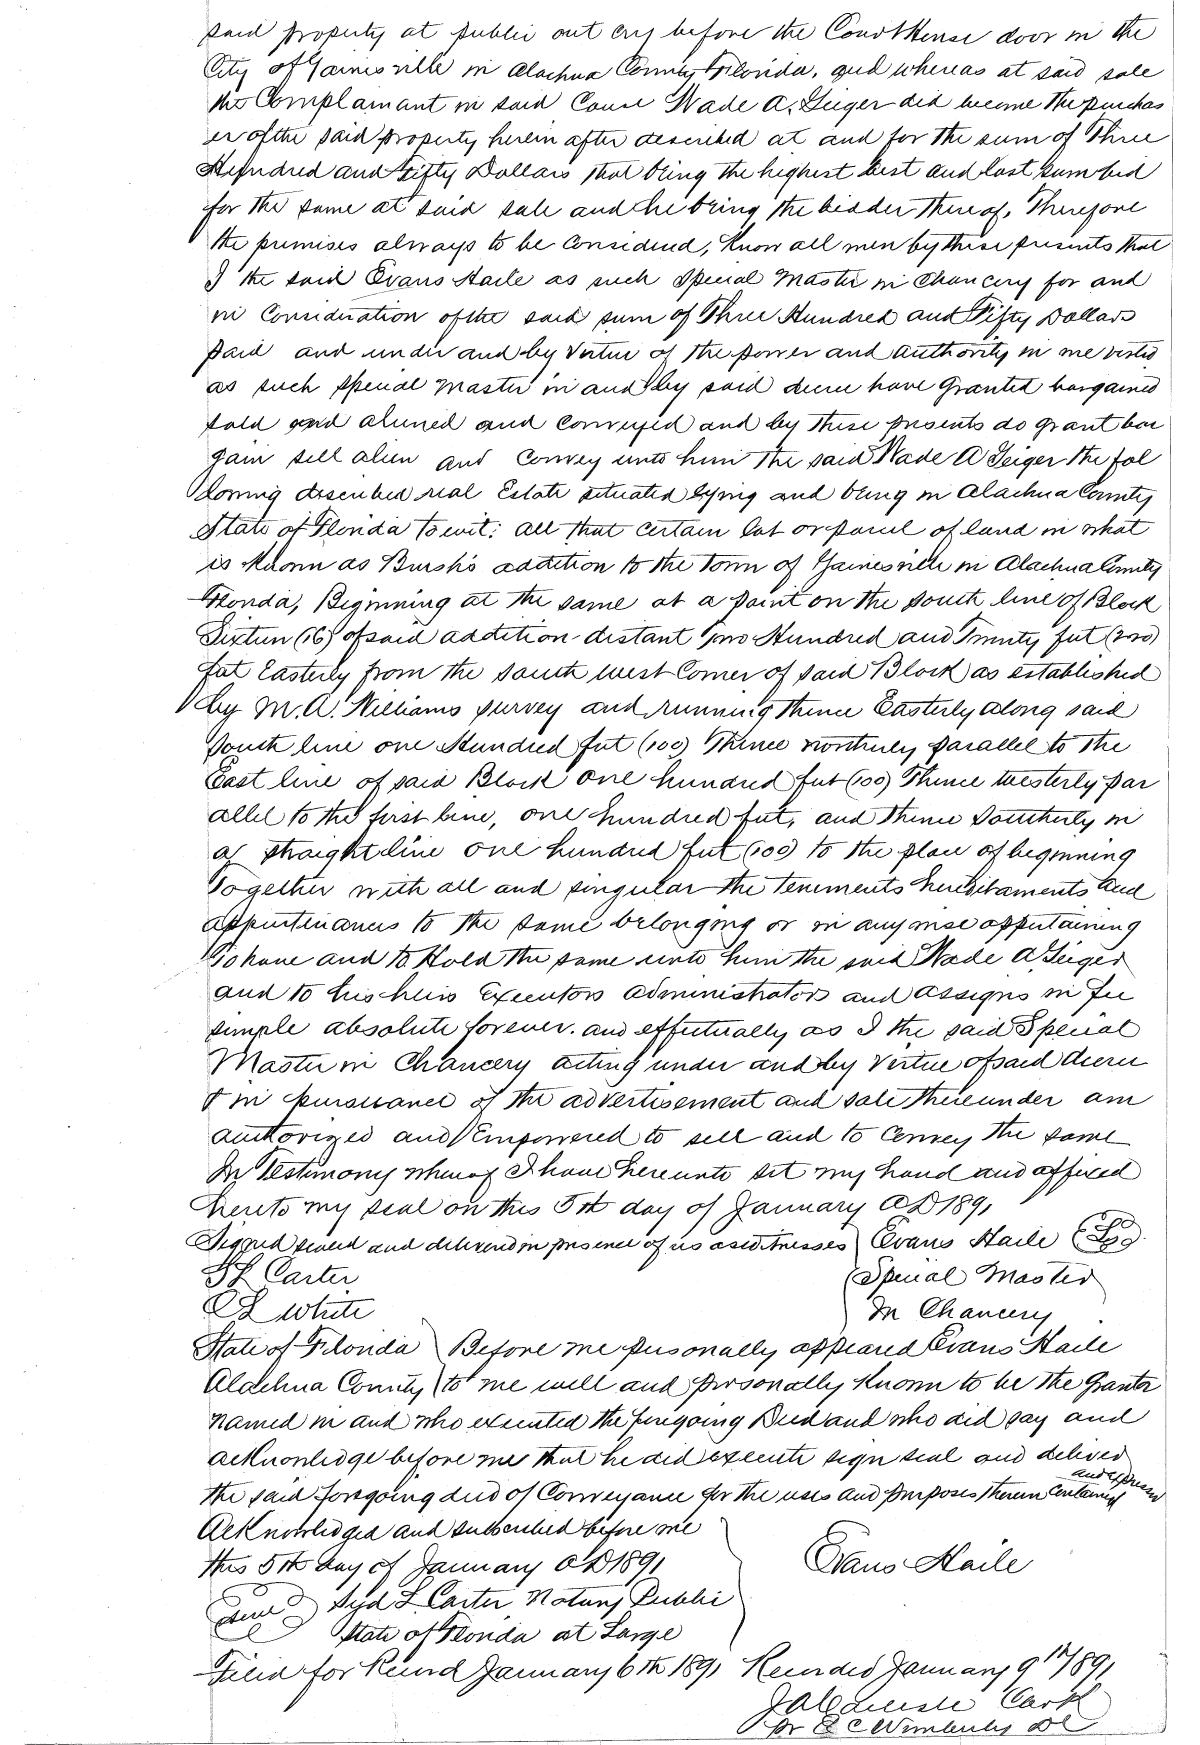 said property at public out cry before the Court House door in the
City of Gainesville in Alachua County Florida, and whereas at said sale
the Complainant in said Cause Wade A. Geiger did become the purchas
er of the said property herein after described at and for the sum of Three
Hundred and Fifty Dollars that being the highest best and last sum bid
for the same at said sale and he being the bidder thereof, Therefore
the premises always to be considered, Know all men by these presents that
I the said Evans Haile as such Special Master in Chancery for and
in Consideration of the said sum of Three Hundred and Fifty Dollars
paid and under and by Virtue of the power and authority in me vested
as such special master in and by said decree have granted bargained
sold and aliened and conveyed and by these presents do grant bar
gain sell alien and convey unto him the said Wade A Geiger the fol
lowing described real Estate situated lying and being in Alachua County
State of Florida to wit: all that certain lot or parcel of land in what
is Known as Brush's addition to the Town of Gainesville in Alachua County
Florida, Beginning at the same at a point on the south line of Block
Sixteen (16) of said addition distant Two Hundred and Twenty feet (220)
feet Easterly from the south west Corner of said Block as established
by M. A. Williams survey and running thence Easterly along said
South line one Hundred feet (100) Thence northerly parallel to the
East line of said Block one hundred feet (100) Thence westerly par
allel to the first line, one hundred feet, and thence Southerly in
a straight line one hundred feet (100) to the place of beginning
Together with all and singular the tenements hereditaments and
appurtenances to the same belonging or in anywise appertaining
To have and to Hold the same unto him the said Wade A Geiger
and to his heirs Executors administrators and assigns in Fee
simple absolute forever. and effectually as I the said Special
Master in Chancery acting under and by Virtue of said decree
& in pursuance of the advertisement and sale thereunder am
authorized and Empowered to sell and to convey the same
In Testimony whereof I have hereunto set my hand and affixed
hereto my seal on this 5th day of January AD 1891
Signed sealed and delivered in presence of us as witnesses Evans Haile (LS)
S L Carter Special Master
White In Chancery
State of Florida Before me personally appeared Evans Haile
Alachua County to me well and personally Known to be the Grantor
named in and who executed the foregoing Deed and who did say and
acknowledge before me that he did execute sign seal and deliver
and expressed
the said foregoing deed of Conveyance for the uses and purposes therein contained
Acknowledged and subscribed before me
this 5th day of January AD 1891 Evans Haile
Seal Syd L. Carter Notary Public
State of Florida at Large
Filed for Record January 6th 1891 Recorded January 9th 1891
J A Carlisle Clerk
Pr E C Wimberly DC